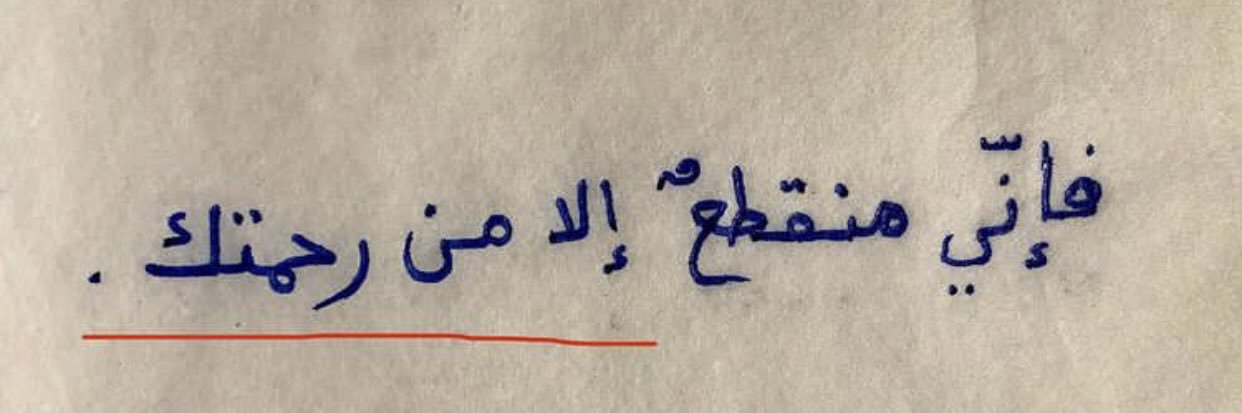 فإنّي منقطعٌ إلا من رحمتك .